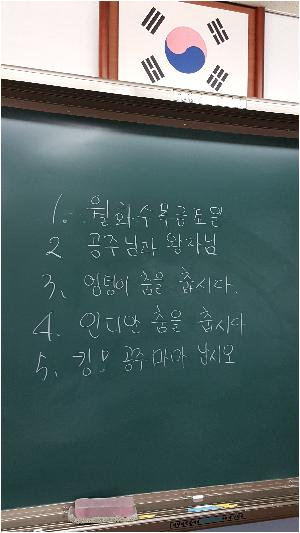 1. 월화수목금토일
2 공주님과 왕자님
3. 엉덩이 춤을 춥시다.
4. 인디안 춤을 춥시다
5. 공주 마마 납시오